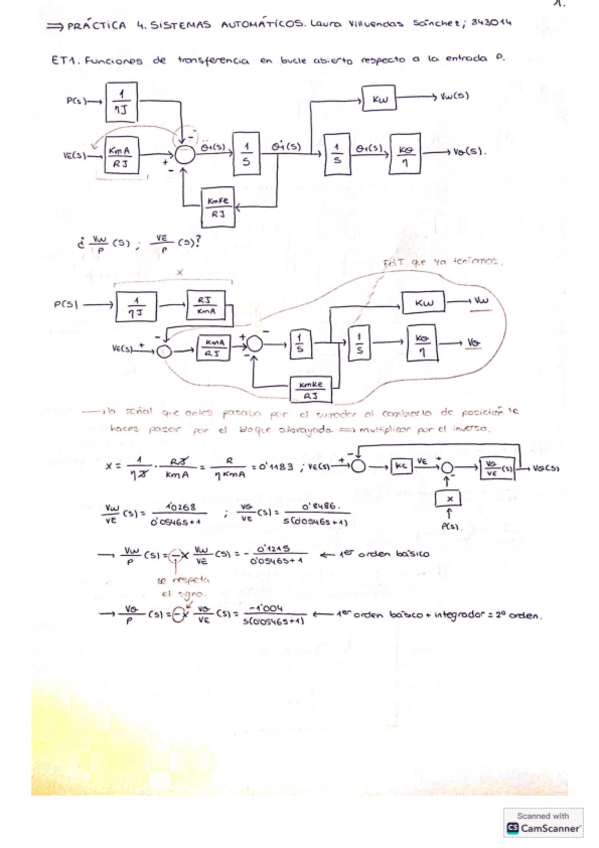 1.
⇒ PRÁCTICA 4. SISTEMAS AUTOMÁTICOS. Laura Villuendas Sánchez; 843014
ET1. Funciones de transferencia en bucle abierto respecto a la entrada P.
P(s) 1/ηJ Kw Vw(s)
VE(s) KmA/RJ + - - θ̈1(s) 1/s θ̇1(s) 1/s θ1(s) Kθ/η Vθ(s).
KmKe/RJ
¿ Vw/P (s) ; VE/P (s)?
FdT que ya teníamos.
x
P(s) 1/ηJ RJ/KmA Kw Vw
VE(s) + - KmA/RJ - - 1/s 1/s Kθ/η Vθ
KmKe/RJ
la señal que antes pasaba por el sumador al cambiarlo de posición le
haces pasar por el bloque subrayado ⇒ multiplicar por el inverso.
x = 1/ηJ · RJ/KmA = R/ηKmA = 0'1183 ; VE(s) + - Kc VE + - Vθ/VE (s) Vθ(s)
x
P(s).
Vw/VE (s) = 1'0268/0'0546s+1 ; Vθ/VE (s) = 0'8486./s(0'0546s+1)
→ Vw/P (s) = -x Vw/VE (s) = - 0'1215/0'0546s+1 ← 1er orden básico
se respeta
el signo.
→ Vθ/P (s) = -x Vθ/VE (s) = -1'004/s(0'0546s+1) ← 1er orden básico + integrador = 2º orden.
Scanned with
CS CamScanner